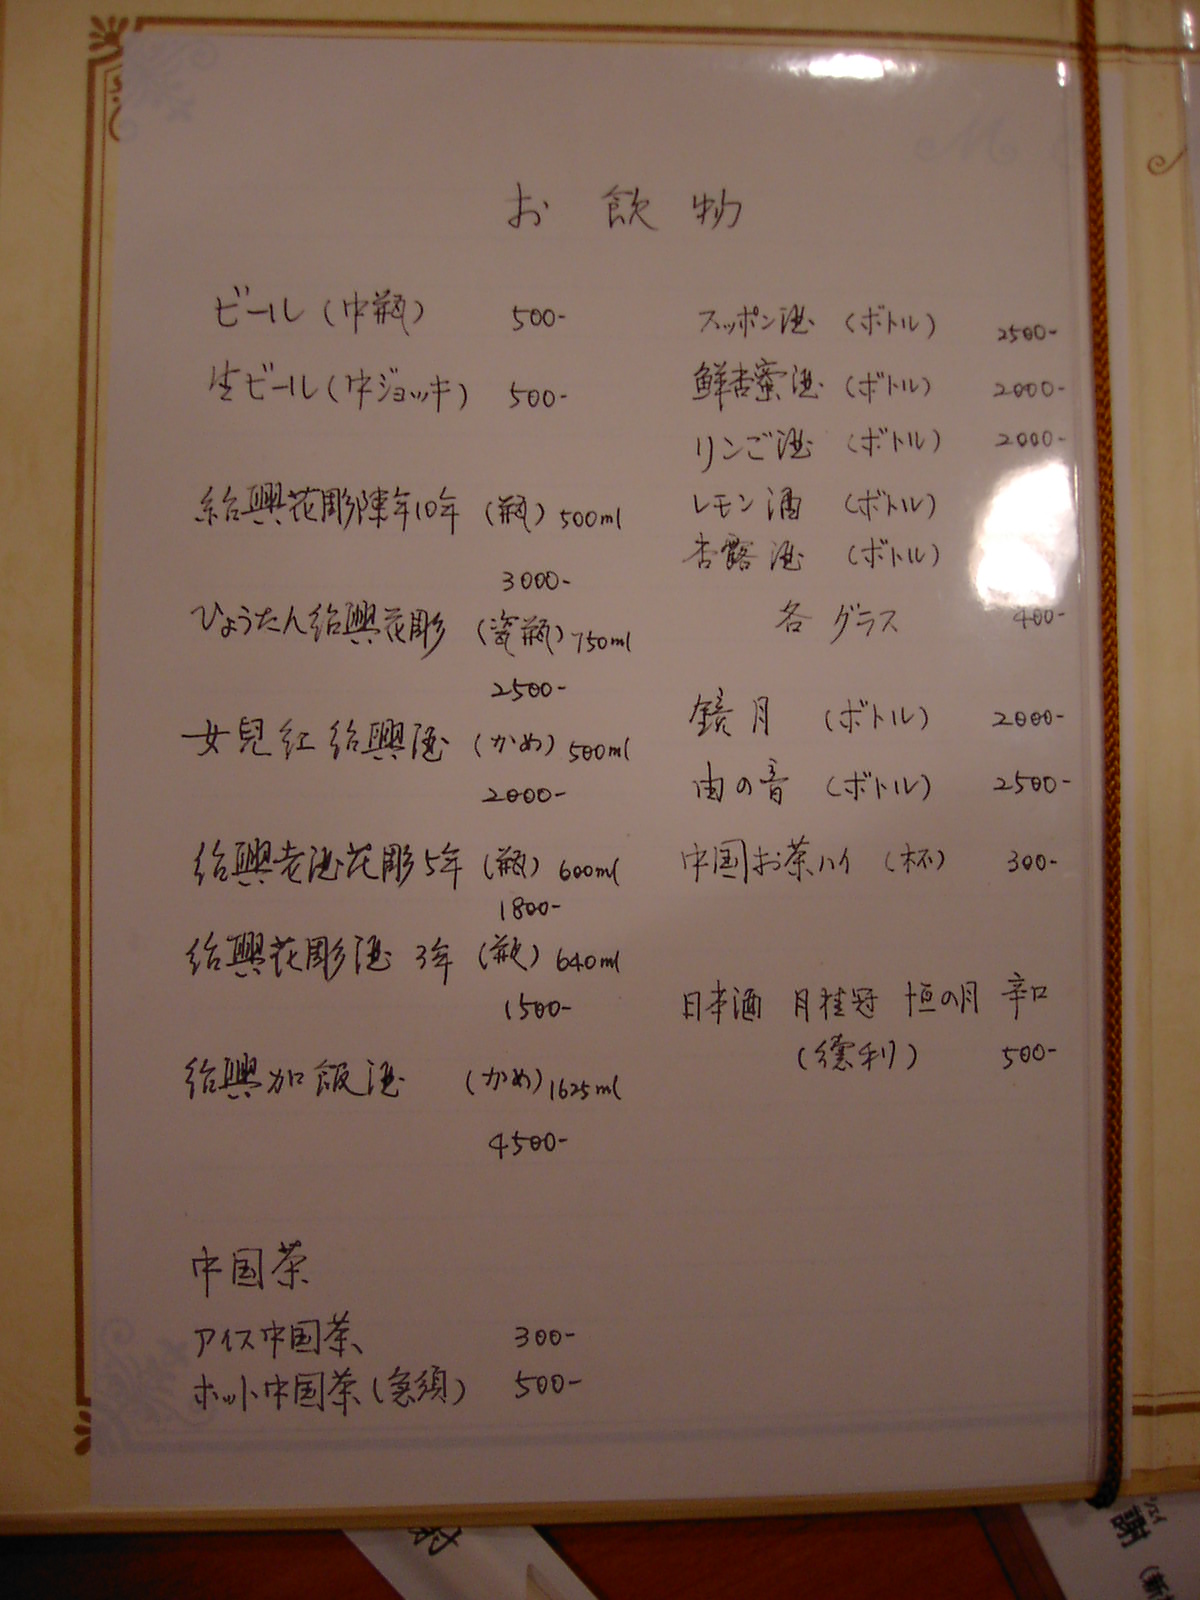 お飲物
ビール(中瓶) 500-
生ビール(中ジョッキ) 500-
紹興花彫陳年10年 (瓶) 500ml
3000-
ひょうたん紹興花彫 (瓷瓶) 750ml
2500-
女兒紅紹興酒 (かめ) 500ml
2000-
紹興老酒花彫5年 (瓶) 600ml
1800-
紹興花彫酒 3年 (瓶) 640ml
1500-
紹興加飯酒 (かめ) 1625ml
4500-
中国茶
アイス中国茶 300-
ホット中国茶(急須) 500-
スッポン酒 (ボトル) 2500-
鮮杏蜜酒 (ボトル) 2000-
リンご酒 (ボトル) 2000-
レモン酒 (ボトル)
杏露酒 (ボトル)
各グラス 400-
鏡月 (ボトル) 2000-
由の音 (ボトル) 2500-
中国お茶ハイ (杯) 300-
日本酒 月桂冠 恒の月 辛口
(徳利) 500-
謝